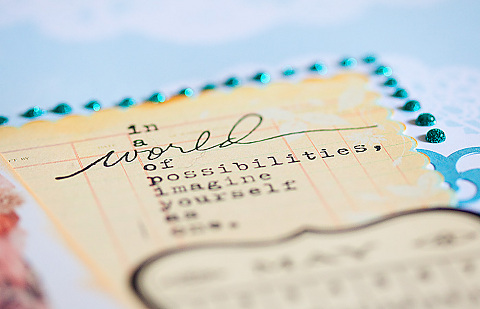 in
a
world
of
possibilities,
imagine
yourself
as
one.
MAY